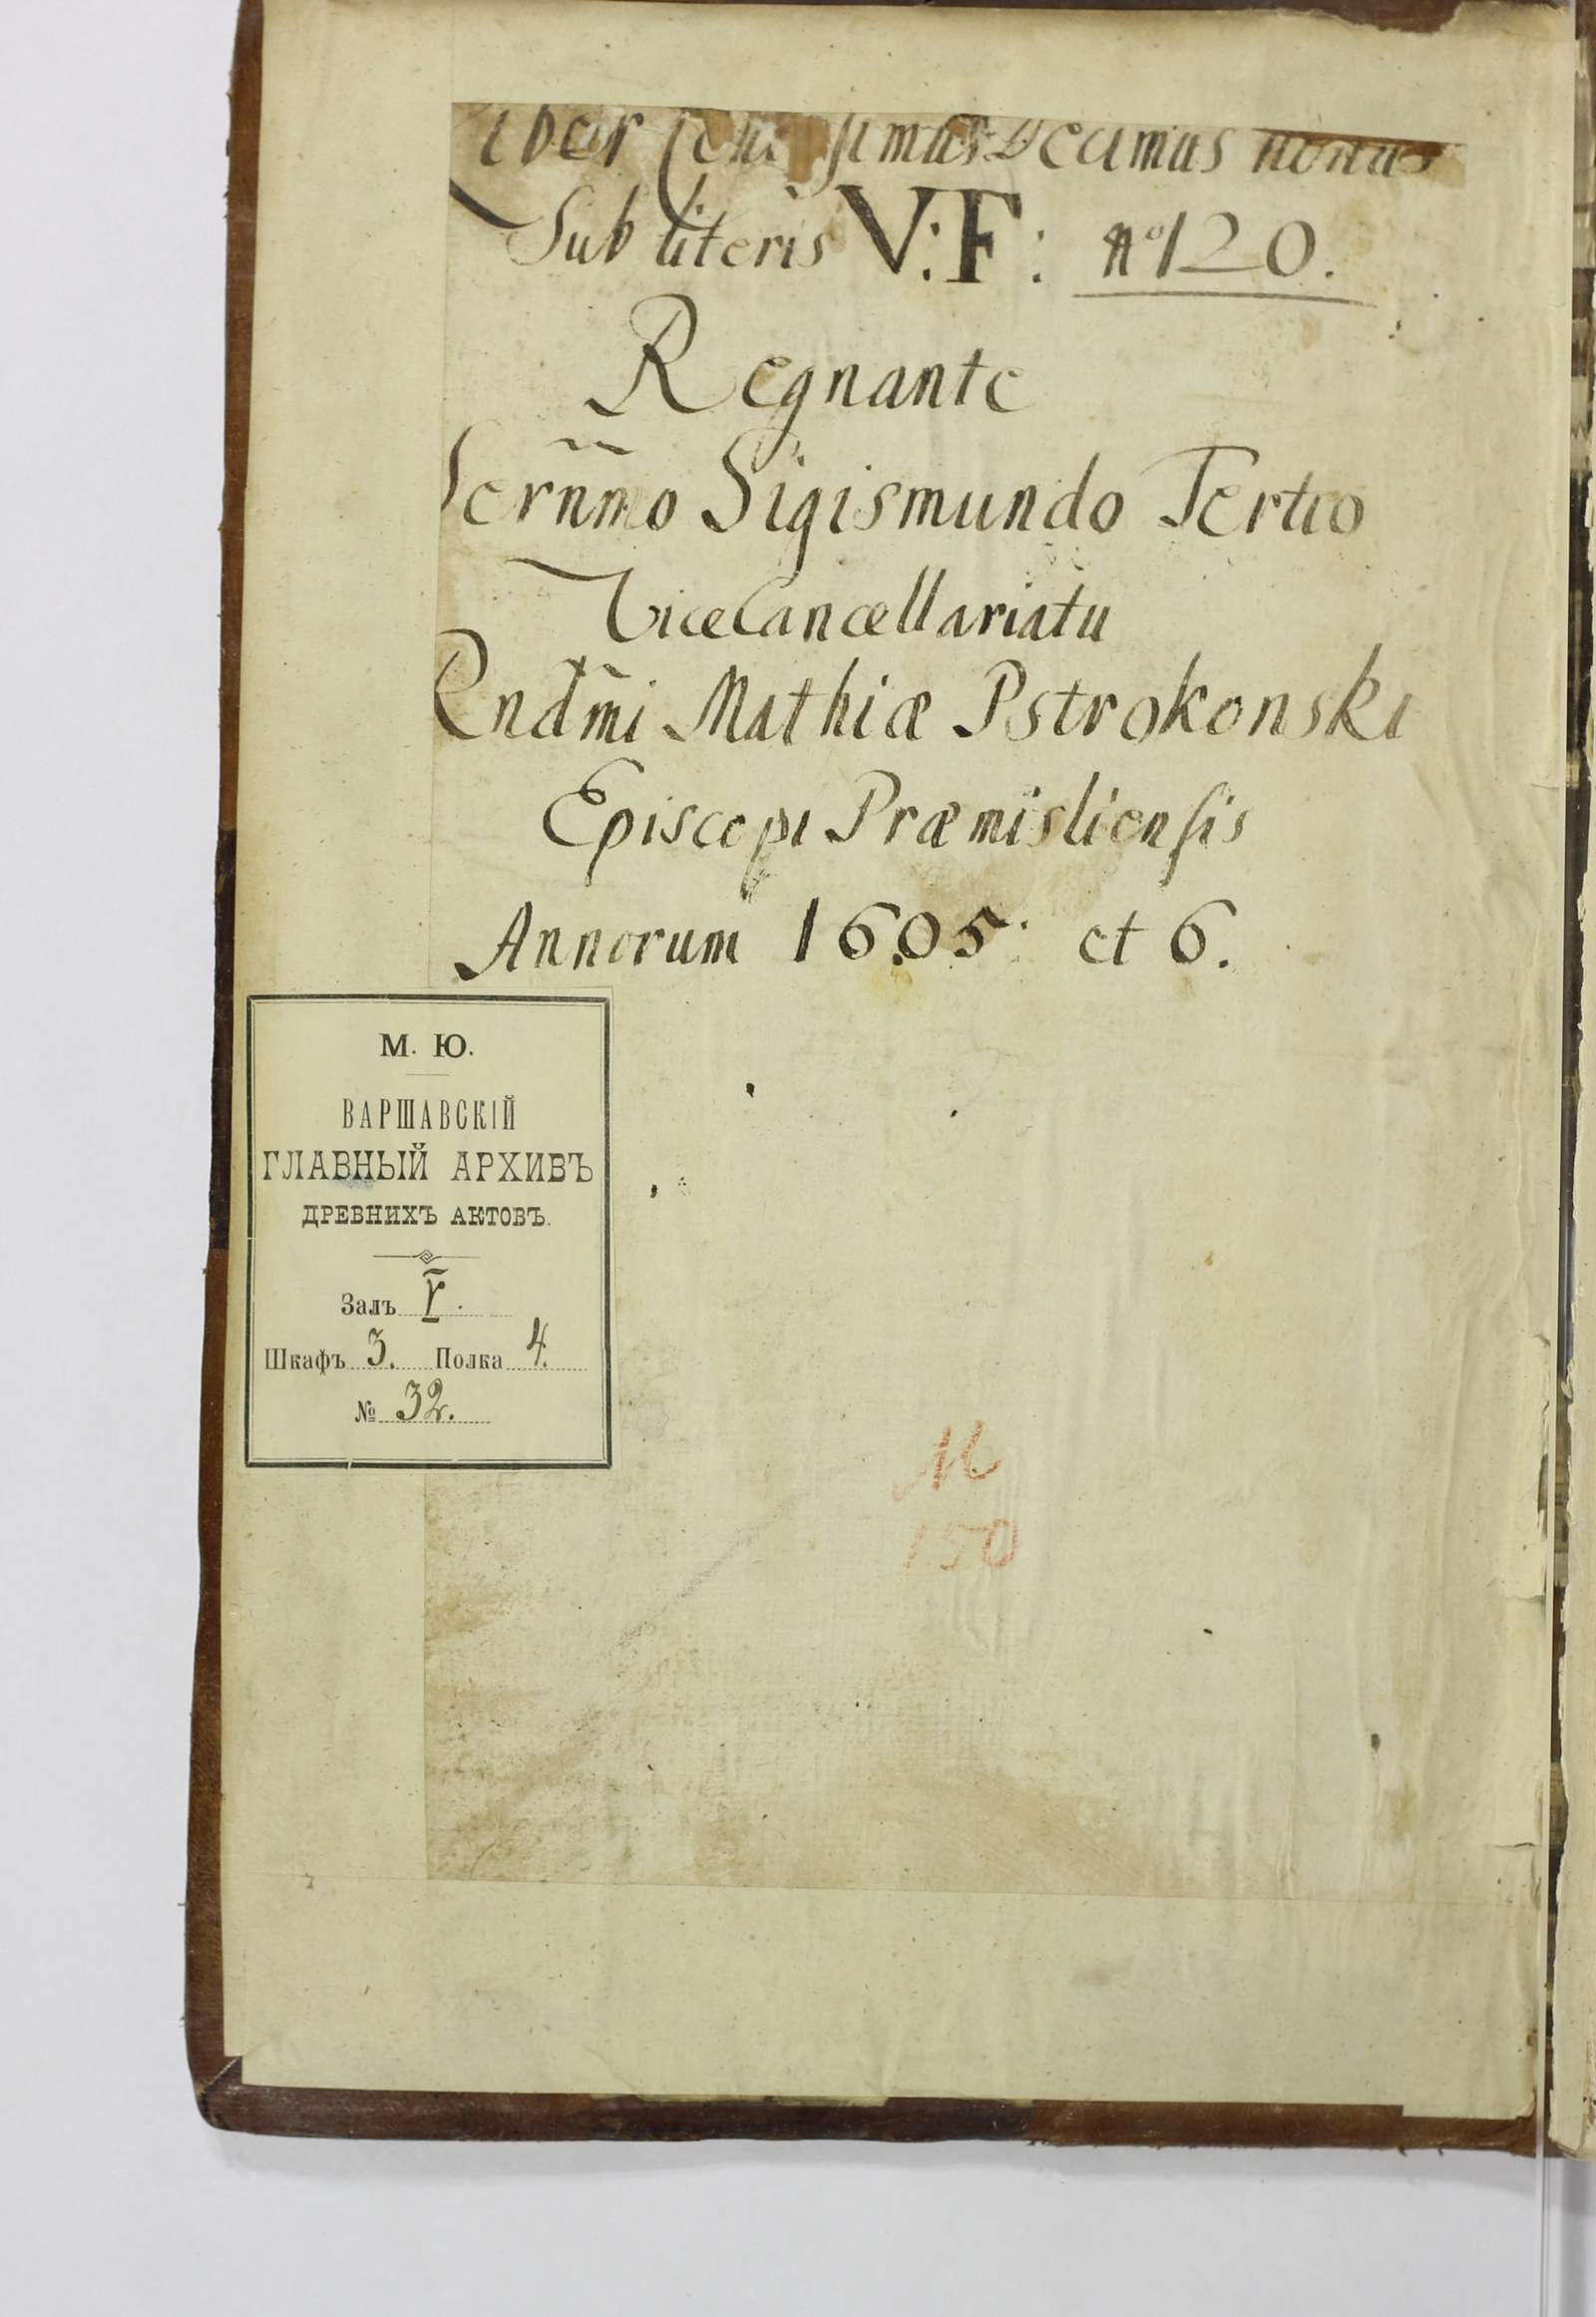 Liber Centesimus Decimus nonus
Sub literis V: F: nº 120.
Regnante
Sernmo Sigismundo Tertio
ViceCancellariatu
Rndmi Mathiæ Pstrokonski
Episcopi Præmisliensis
Annorum 1605 et 6.
М. Ю.
ВАРШАВСКІЙ
ГЛАВНЫЙ АРХИВЪ
ДРЕВНИХЪ АКТОВЪ.
Залъ V.
Шкафъ 3. Полка 4.
№ 32.
M
150